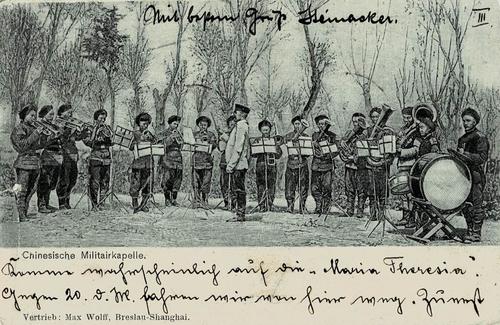 Mit bestem Gruß Steinacker.
III
Chinesische Militairkapelle.
Komme wahrscheinlich auf die „Maria Theresia".
Gegen 20. d. M. fahren wir von hier weg. Zunächst
Vertrieb: Max Wolff, Breslau-Shanghai.